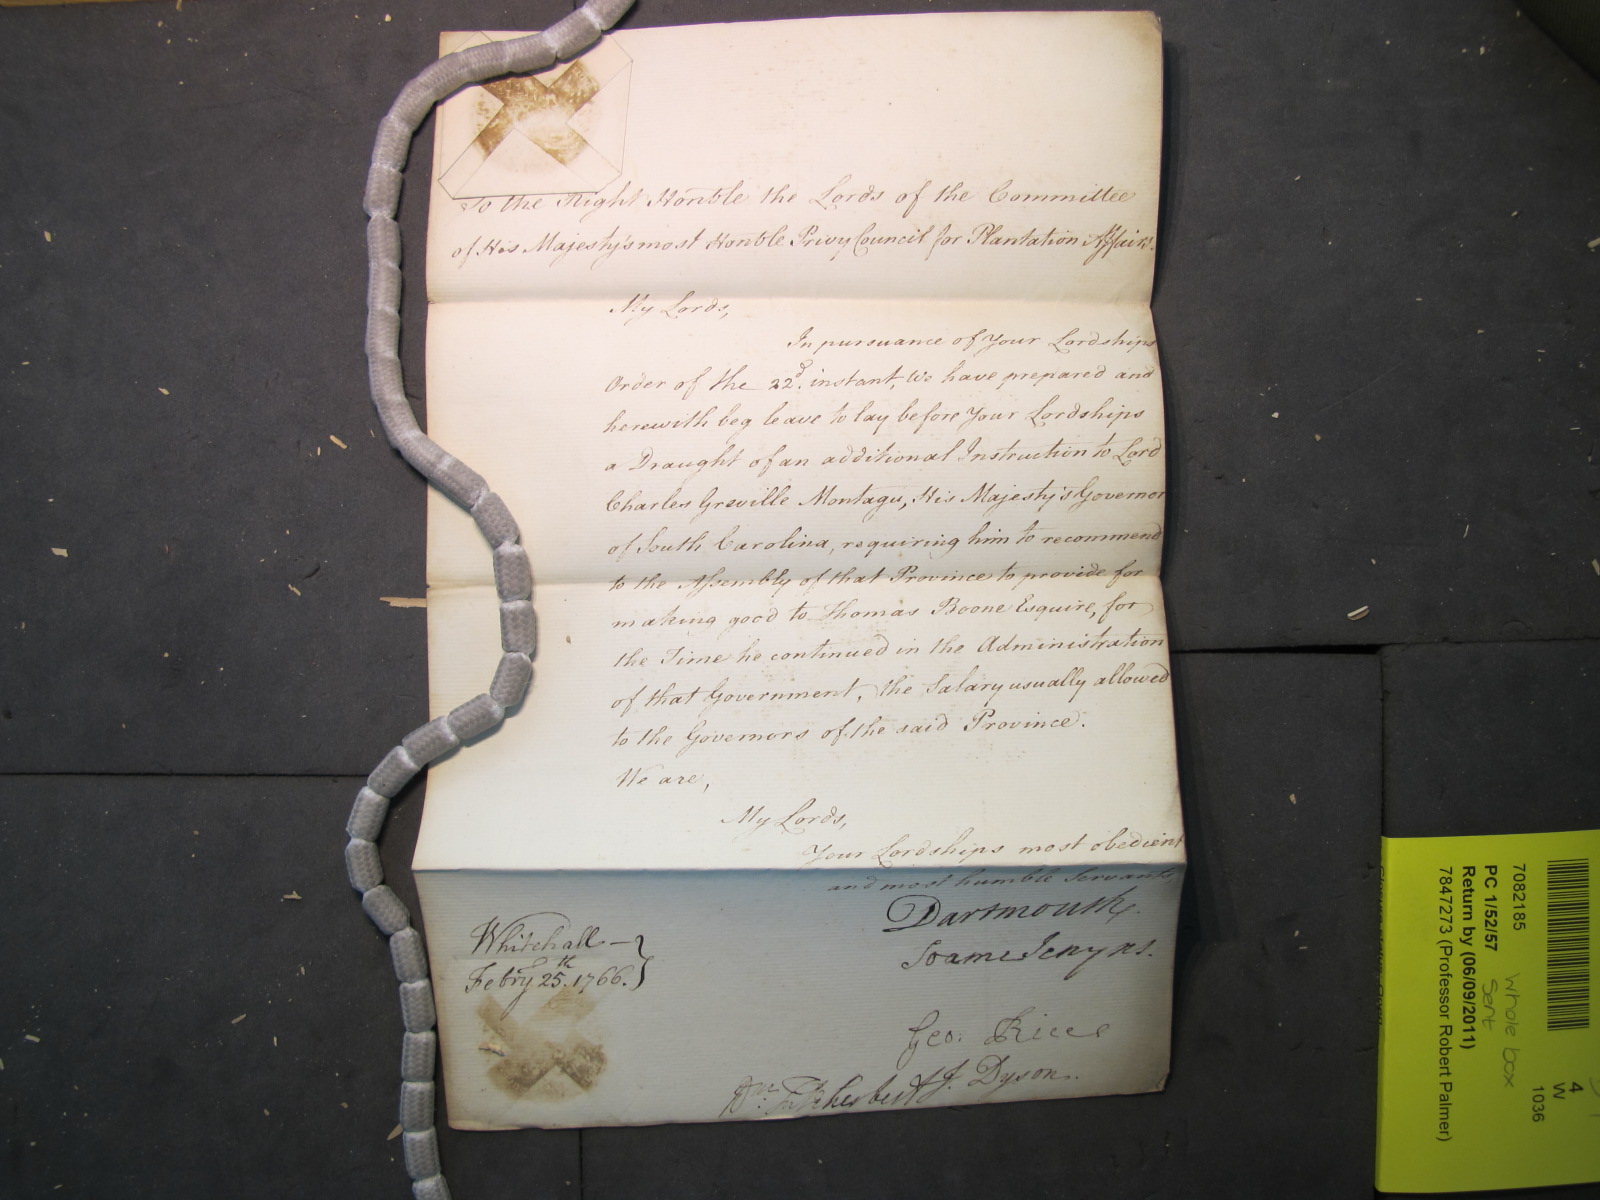 To the Right Honble the Lords of the Committee
of His Majesty's most Honble Privy Council for Plantation Affairs.
My Lords,
In pursuance of Your Lordships
Order of the 22d. instant, We have prepared and
herewith beg leave to lay before Your Lordships
a Draught of an additional Instruction to Lord
Charles Greville Montagu, His Majesty's Governor
of South Carolina, requiring him to recommend
to the Assembly of that Province to provide for
making good to Thomas Boone Esquire, for
the Time he continued in the Administration
of that Government, the Salary usually allowed
to the Governors of the said Province.
We are,
My Lords,
Your Lordships most obedient
and most humble Servants,
Dartmouth.
Soame Jenyns.
Whitehall
Febry 25th. 1766.
Geo: Rice
J. Dyson.
Wm: Fitzherbert
7082185
PC 1/52/57
Return by (06/09/2011)
7847273 (Professor Robert Palmer)
Whole box
Sent
4
W
1036